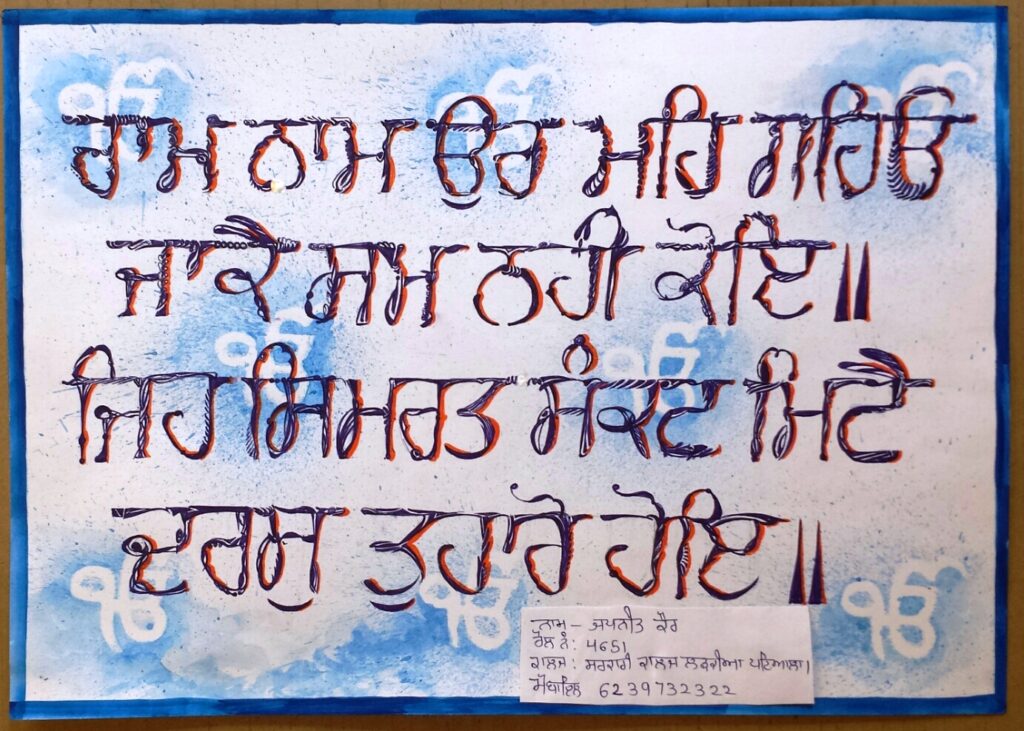 ੴ ੴ ੴ
ਰਾਮ ਨਾਮ ਉਰ ਮਹਿ ਗਹਿਓ
ਜਾਕੈ ਸਮ ਨਹੀ ਕੋਇ॥
ੴ ੴ
ਜਿਹ ਸਿਮਰਤ ਸੰਕਟ ਮਿਟੈ
ਦਰਸੁ ਤੁਹਾਰੋ ਹੋਇ॥
ੴ ੴ ੴ
ਨਾਮ – ਜਪਨੀਤ ਕੌਰ
ਰੋਲ ਨੰ: 4651
ਕਾਲਜ: ਸਰਕਾਰੀ ਕਾਲਜ ਲੜਕੀਆ ਪਟਿਆਲਾ।
ਮੋਬਾਇਲ 6239732322